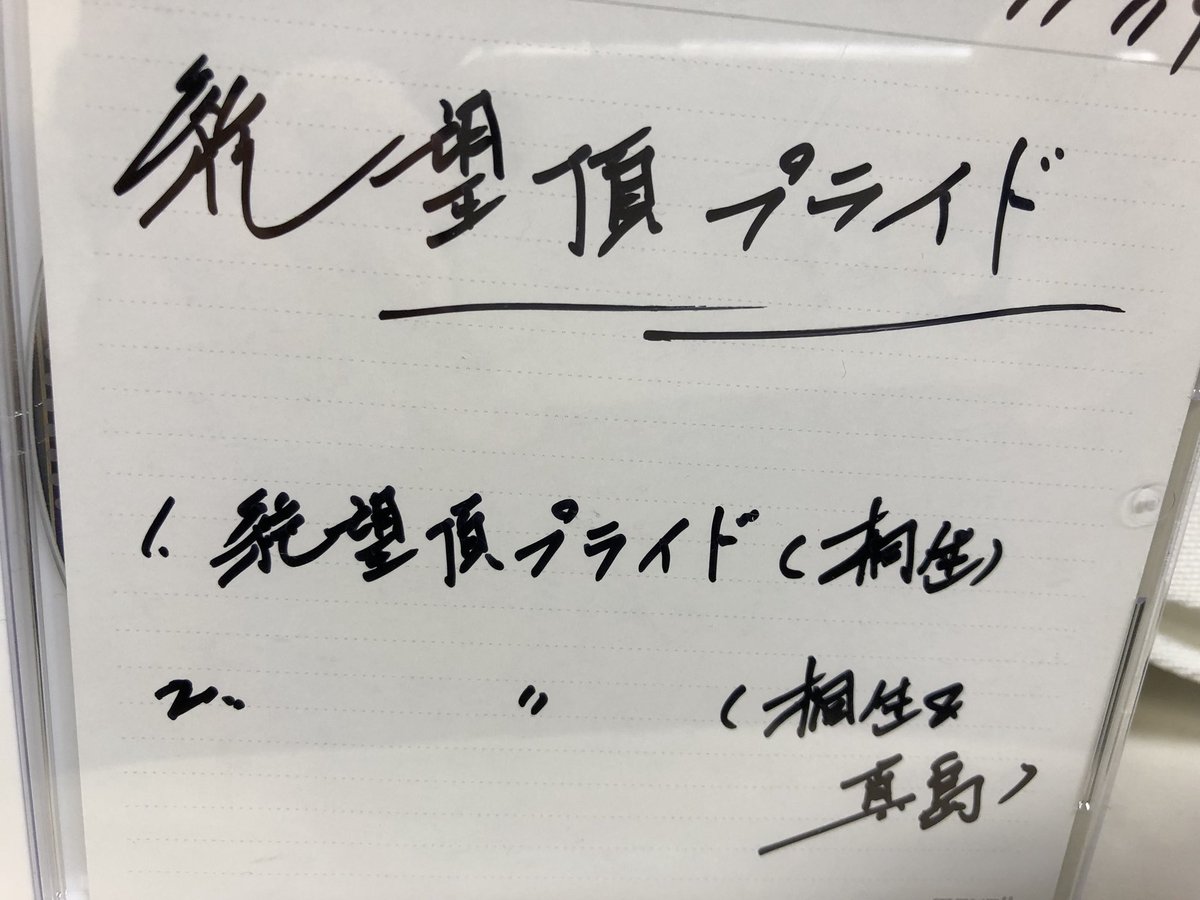 絶望頂プライド
1. 絶望頂プライド (桐生)
2. 〃 (桐生&
真島)